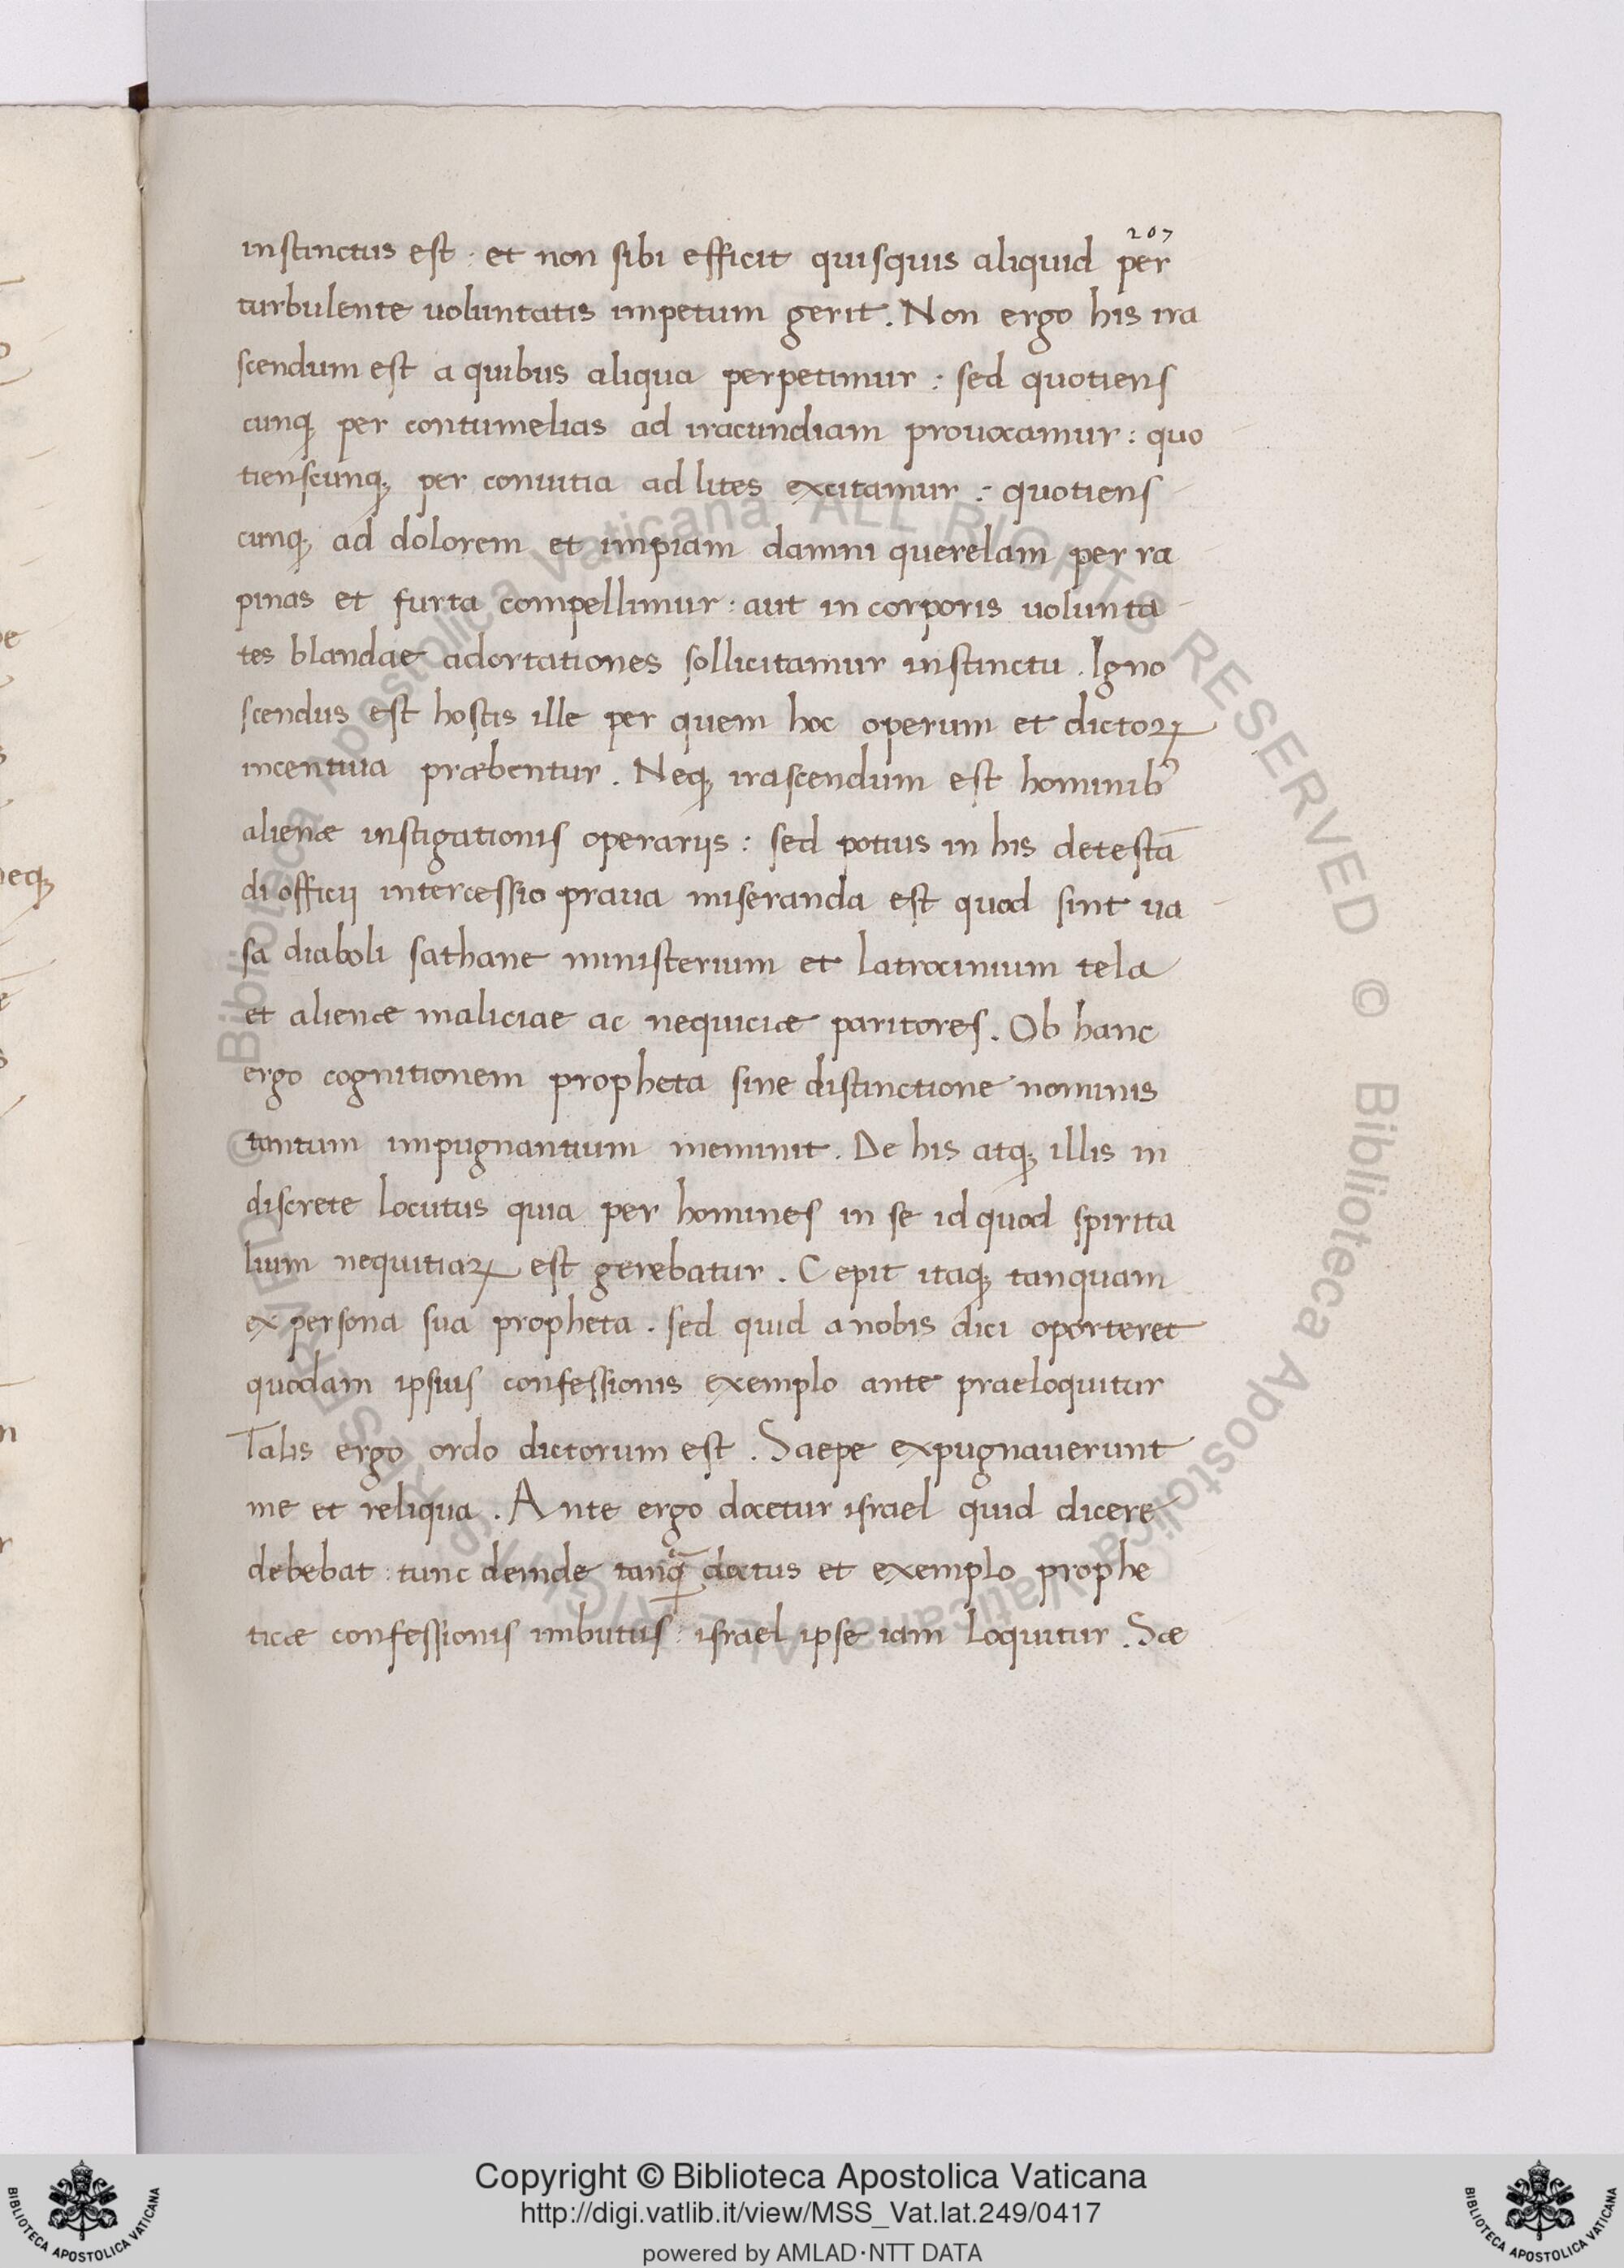 207
instinctus est : et non sibi efficit quisquis aliquid per
turbulente voluntatis impetum gerit. Non ergo his ira
scendum est a quibus aliqua perpetimur : sed quotiens
cunq; per contumelias ad iracundiam provocamur : quo
tienscunq; per convitia ad lites excitamur : quotiens
cunq; ad dolorem et impiam damni querelam per ra
pinas et furta compellimur : aut in corporis volunta
tes blandae adortationes sollicitamur instinctu . Igno
scendus est hostis ille per quem hoc operum et dictoꝝ
incentiva præbentur . Neq; irascendum est hominibꝰ
alienæ instigationis operariis : sed potius in his detestā
di officii intercessio prava miseranda est quod sint va
sa diaboli sathane ministerium et latrocinium tela
et alienæ maliciae ac nequiciæ paritores . Ob hanc
ergo cognitionem propheta sine distinctione nominis
tantum impugnantium meminit . De his atq; illis in
discrete locutus quia per homines in se id quod spirita
lium nequitiaꝝ est gerebatur . Cepit itaq; tanquam
ex persona sua propheta . sed quid a nobis dici oporteret
quodam ipsius confessionis exemplo ante praeloquitur
Talis ergo ordo dictorum est . Saepe expugnaverunt
me et reliqua . Ante ergo docetur israel quid dicere
debebat : tunc deinde tanq̄ doctus et exemplo prophe
ticæ confessionis imbutus : israel ipse iam loquitur . Sæ
eq;
© Biblioteca Apostolica Vaticana ALL RIGHTS RESERVED © Biblioteca Apostolica Vaticana ALL RIGHTS RESERVED
Copyright © Biblioteca Apostolica Vaticana
http://digi.vatlib.it/view/MSS_Vat.lat.249/0417
powered by AMLAD·NTT DATA
BIBLIOTECA APOSTOLICA VATICANA
BIBLIOTECA APOSTOLICA VATICANA